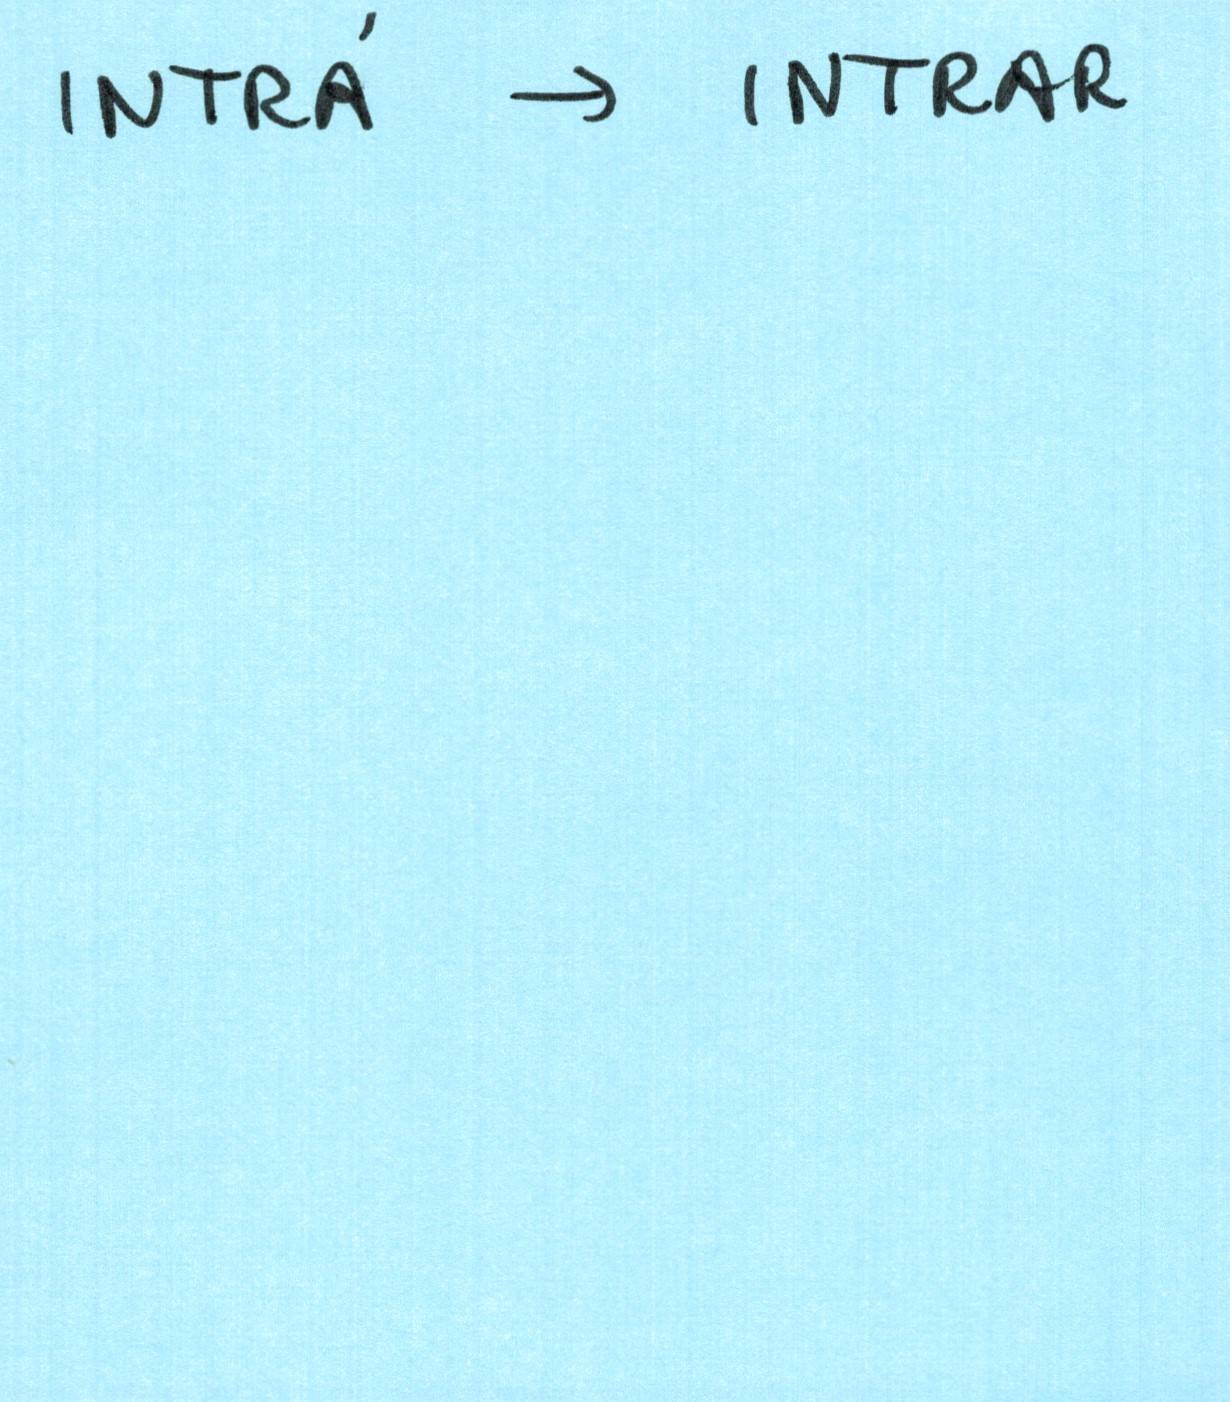 INTRÁ → INTRAR